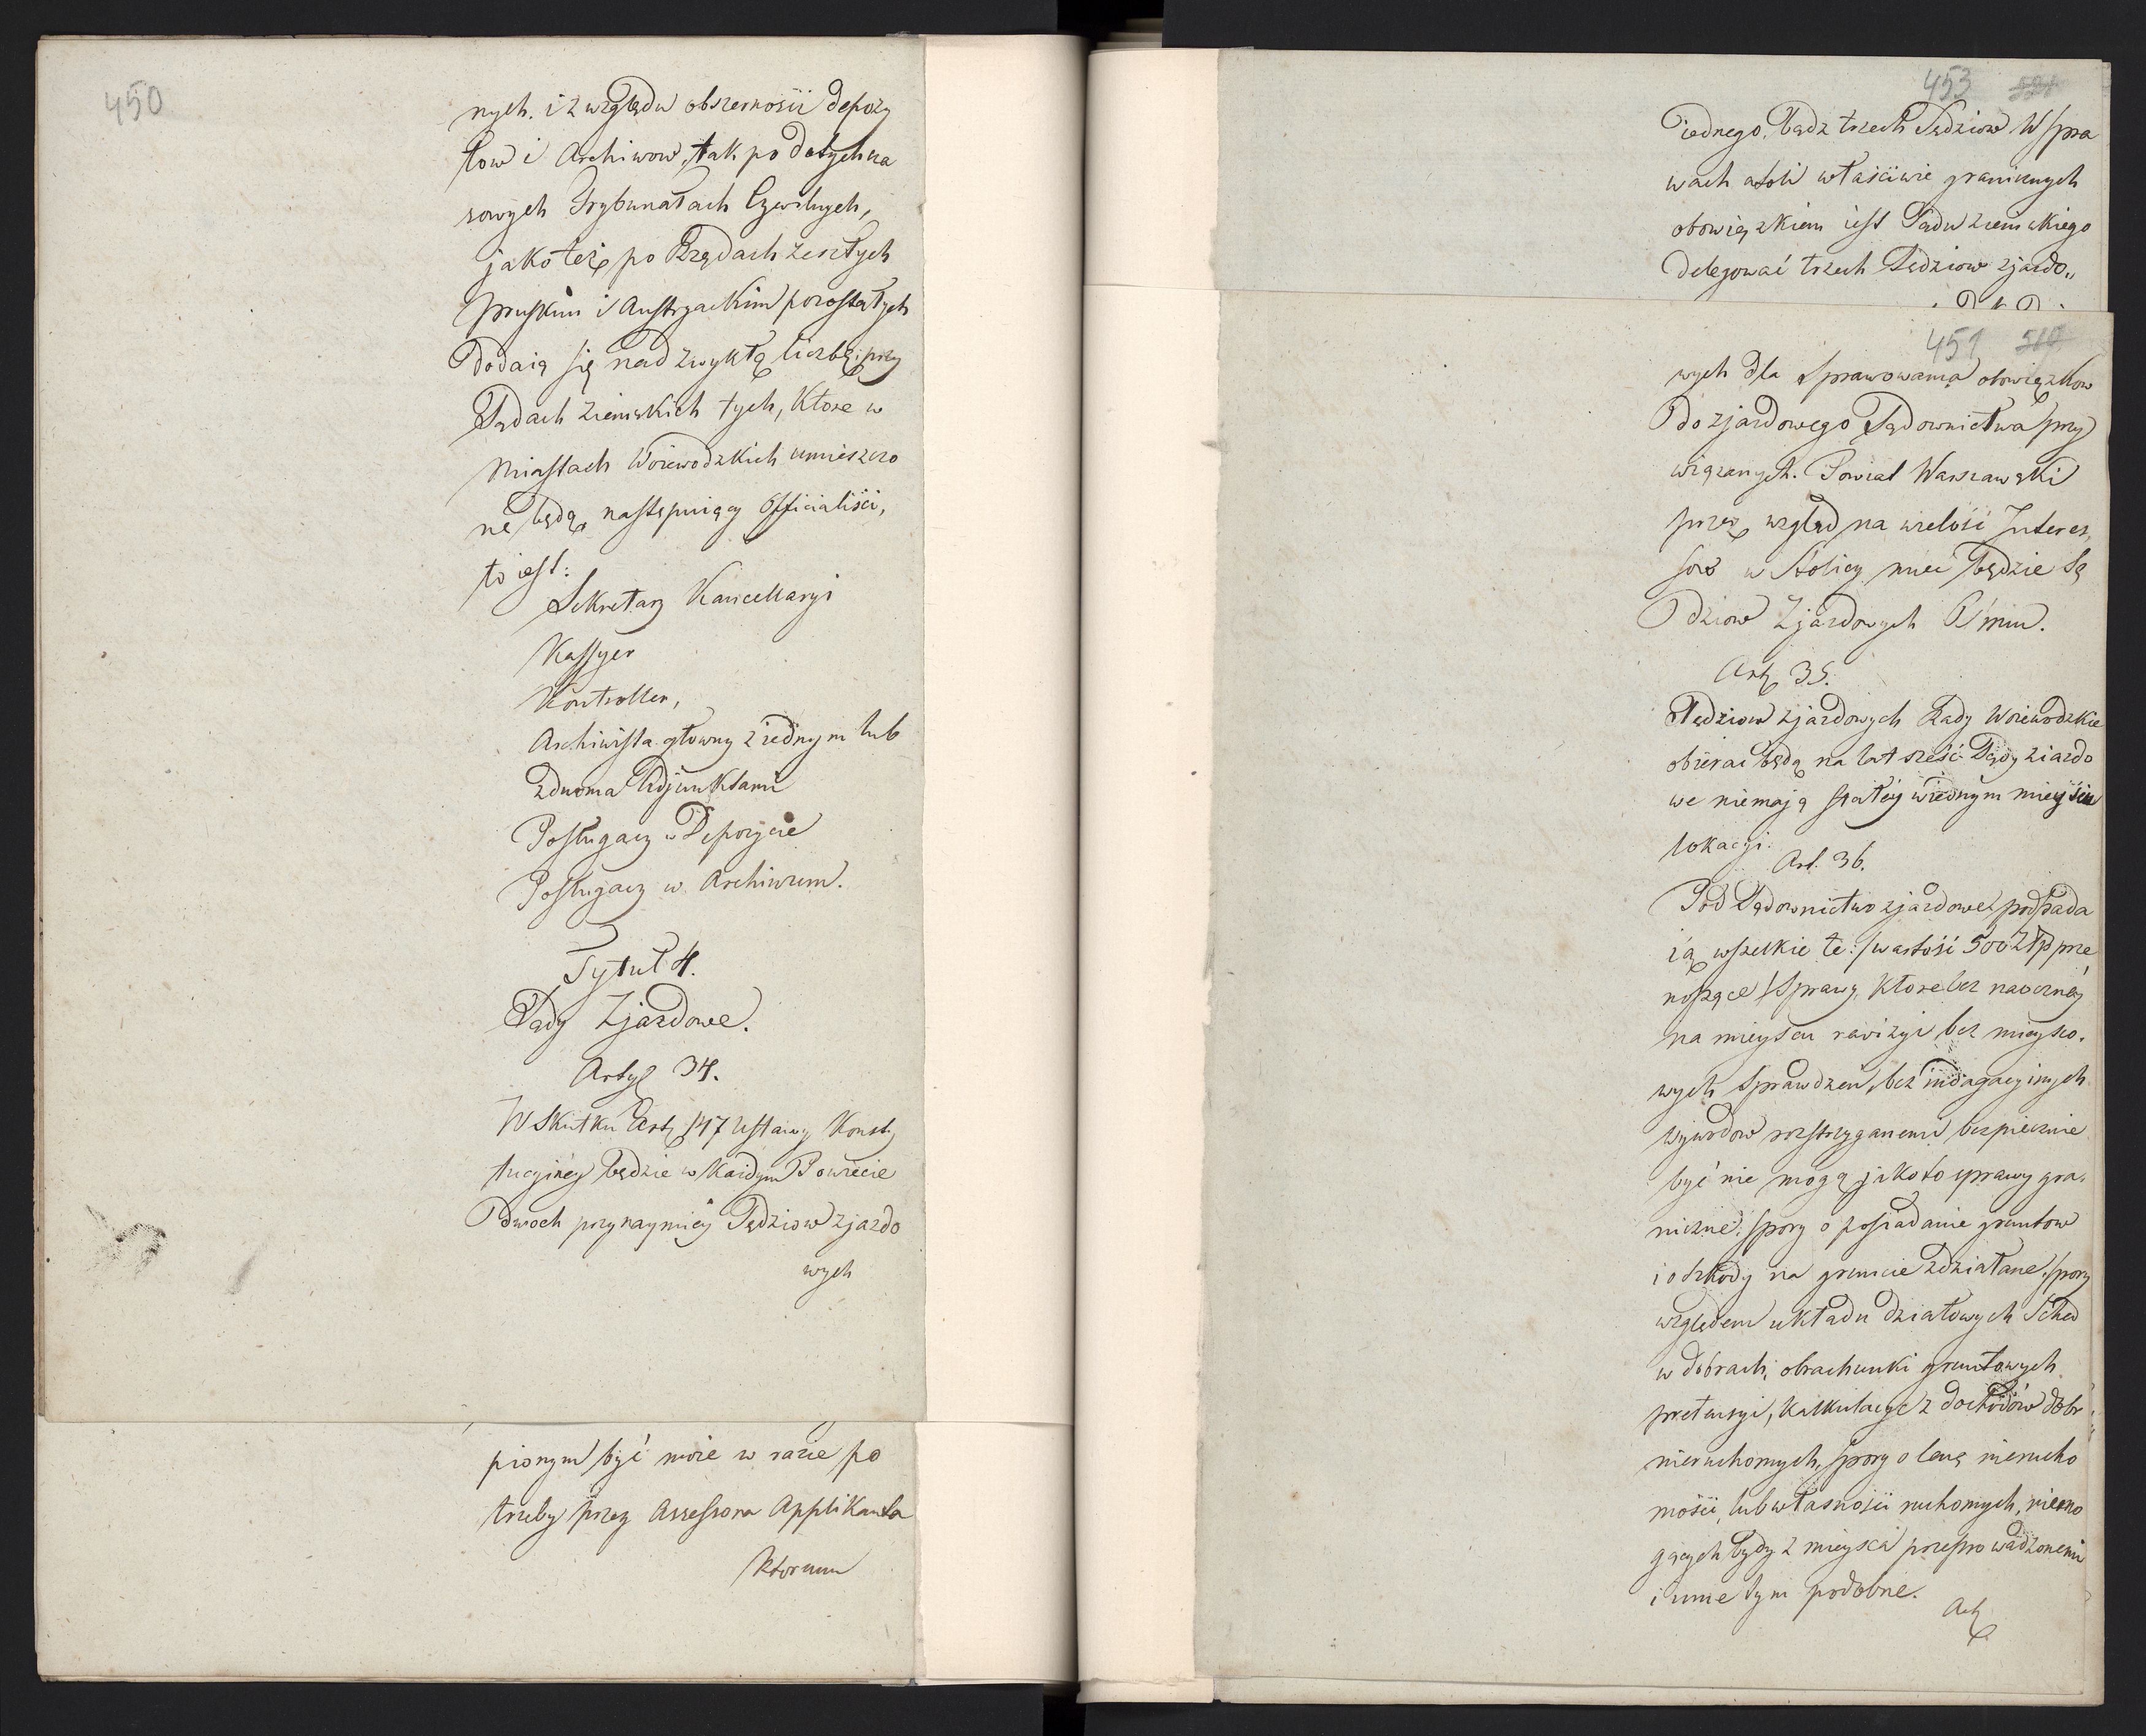 450
nych. i z względu obszerności depozy
tow i Archiwow, tak po dotychcza
sowych Trybunałach Cywilnych,
jako też po Rządach zeszłych
Pruskim i Austryackim pozostałych
dodaią się nad zwykłą liczbę, przy
Sądach Ziemskich tych, które w
Miastach Woiewodzkich umieszczo
ne będą, następuiący Officialiści,
to iest:
Sekretarz Kancellaryi
Kassyer
Kontroller,
Archiwista głowny z iednym lub
z dwoma Adjunktami
Posługacz w Depozycie
Posługacz w Archiwum.
Tytuł 4.
Sądy Zjazdowe.
Artyz 34.
W Skutku Art. 147 Ustawy Konsty
tucyiney będzie w każdym Powiecie
dwoch przynaymniey Sędziow zjazdo
wych
pionym być może w razie po
trzeby przez Assessora Applikanta
ktorum
453
iednego, bądz trzech Sędziow W spra
wach atoli właściwie granicznych
obowiązkiem iest Sądu ziemskiego
delegować trzech Sędziow zjazdo„
451
wych dla sprawowania obowiązkow
do zjazdowego Sądownictwa przy
wiązanych. Powiat Warszawski
przez wzgląd na wielość Interes„
sow w Stolicy mieć będzie Sę
dziow Zjazdowych Ośmiu.
Art. 35.
Sędziow zjazdowych Rady Woiewodzkie
obierać będą na lat sześć Sądy ziazdo
we niemają stałey w iednym mieyscu
lokacyi.
Art. 36.
Pod Sądownictwo zjazdowe podpada
ią wszelkie te: /wartość 500 Złp prze
noszące/ Sprawy, ktore bez naoczney
na mieyscu rewizyi bez mieysco.
wych sprawdzeń, bez indagacyinych
wywodow rozstrzyganemi bezpiecznie
być nie mogą jako to sprawy gra.
niczne; spory o posiadanie gruntow
i o szkody na gruncie zdziałane, spory
względem układu działowych Sched
w dobrach, obrachunki gruntowych
pretensyi, kalkulacye z dochodów dobr
nieruchomych, spory o cenę nierucho
mości, lub własności ruchomych, niemo
gących bydz z mieysca przeprowadzonemi
i inne tym podobne.
Art.